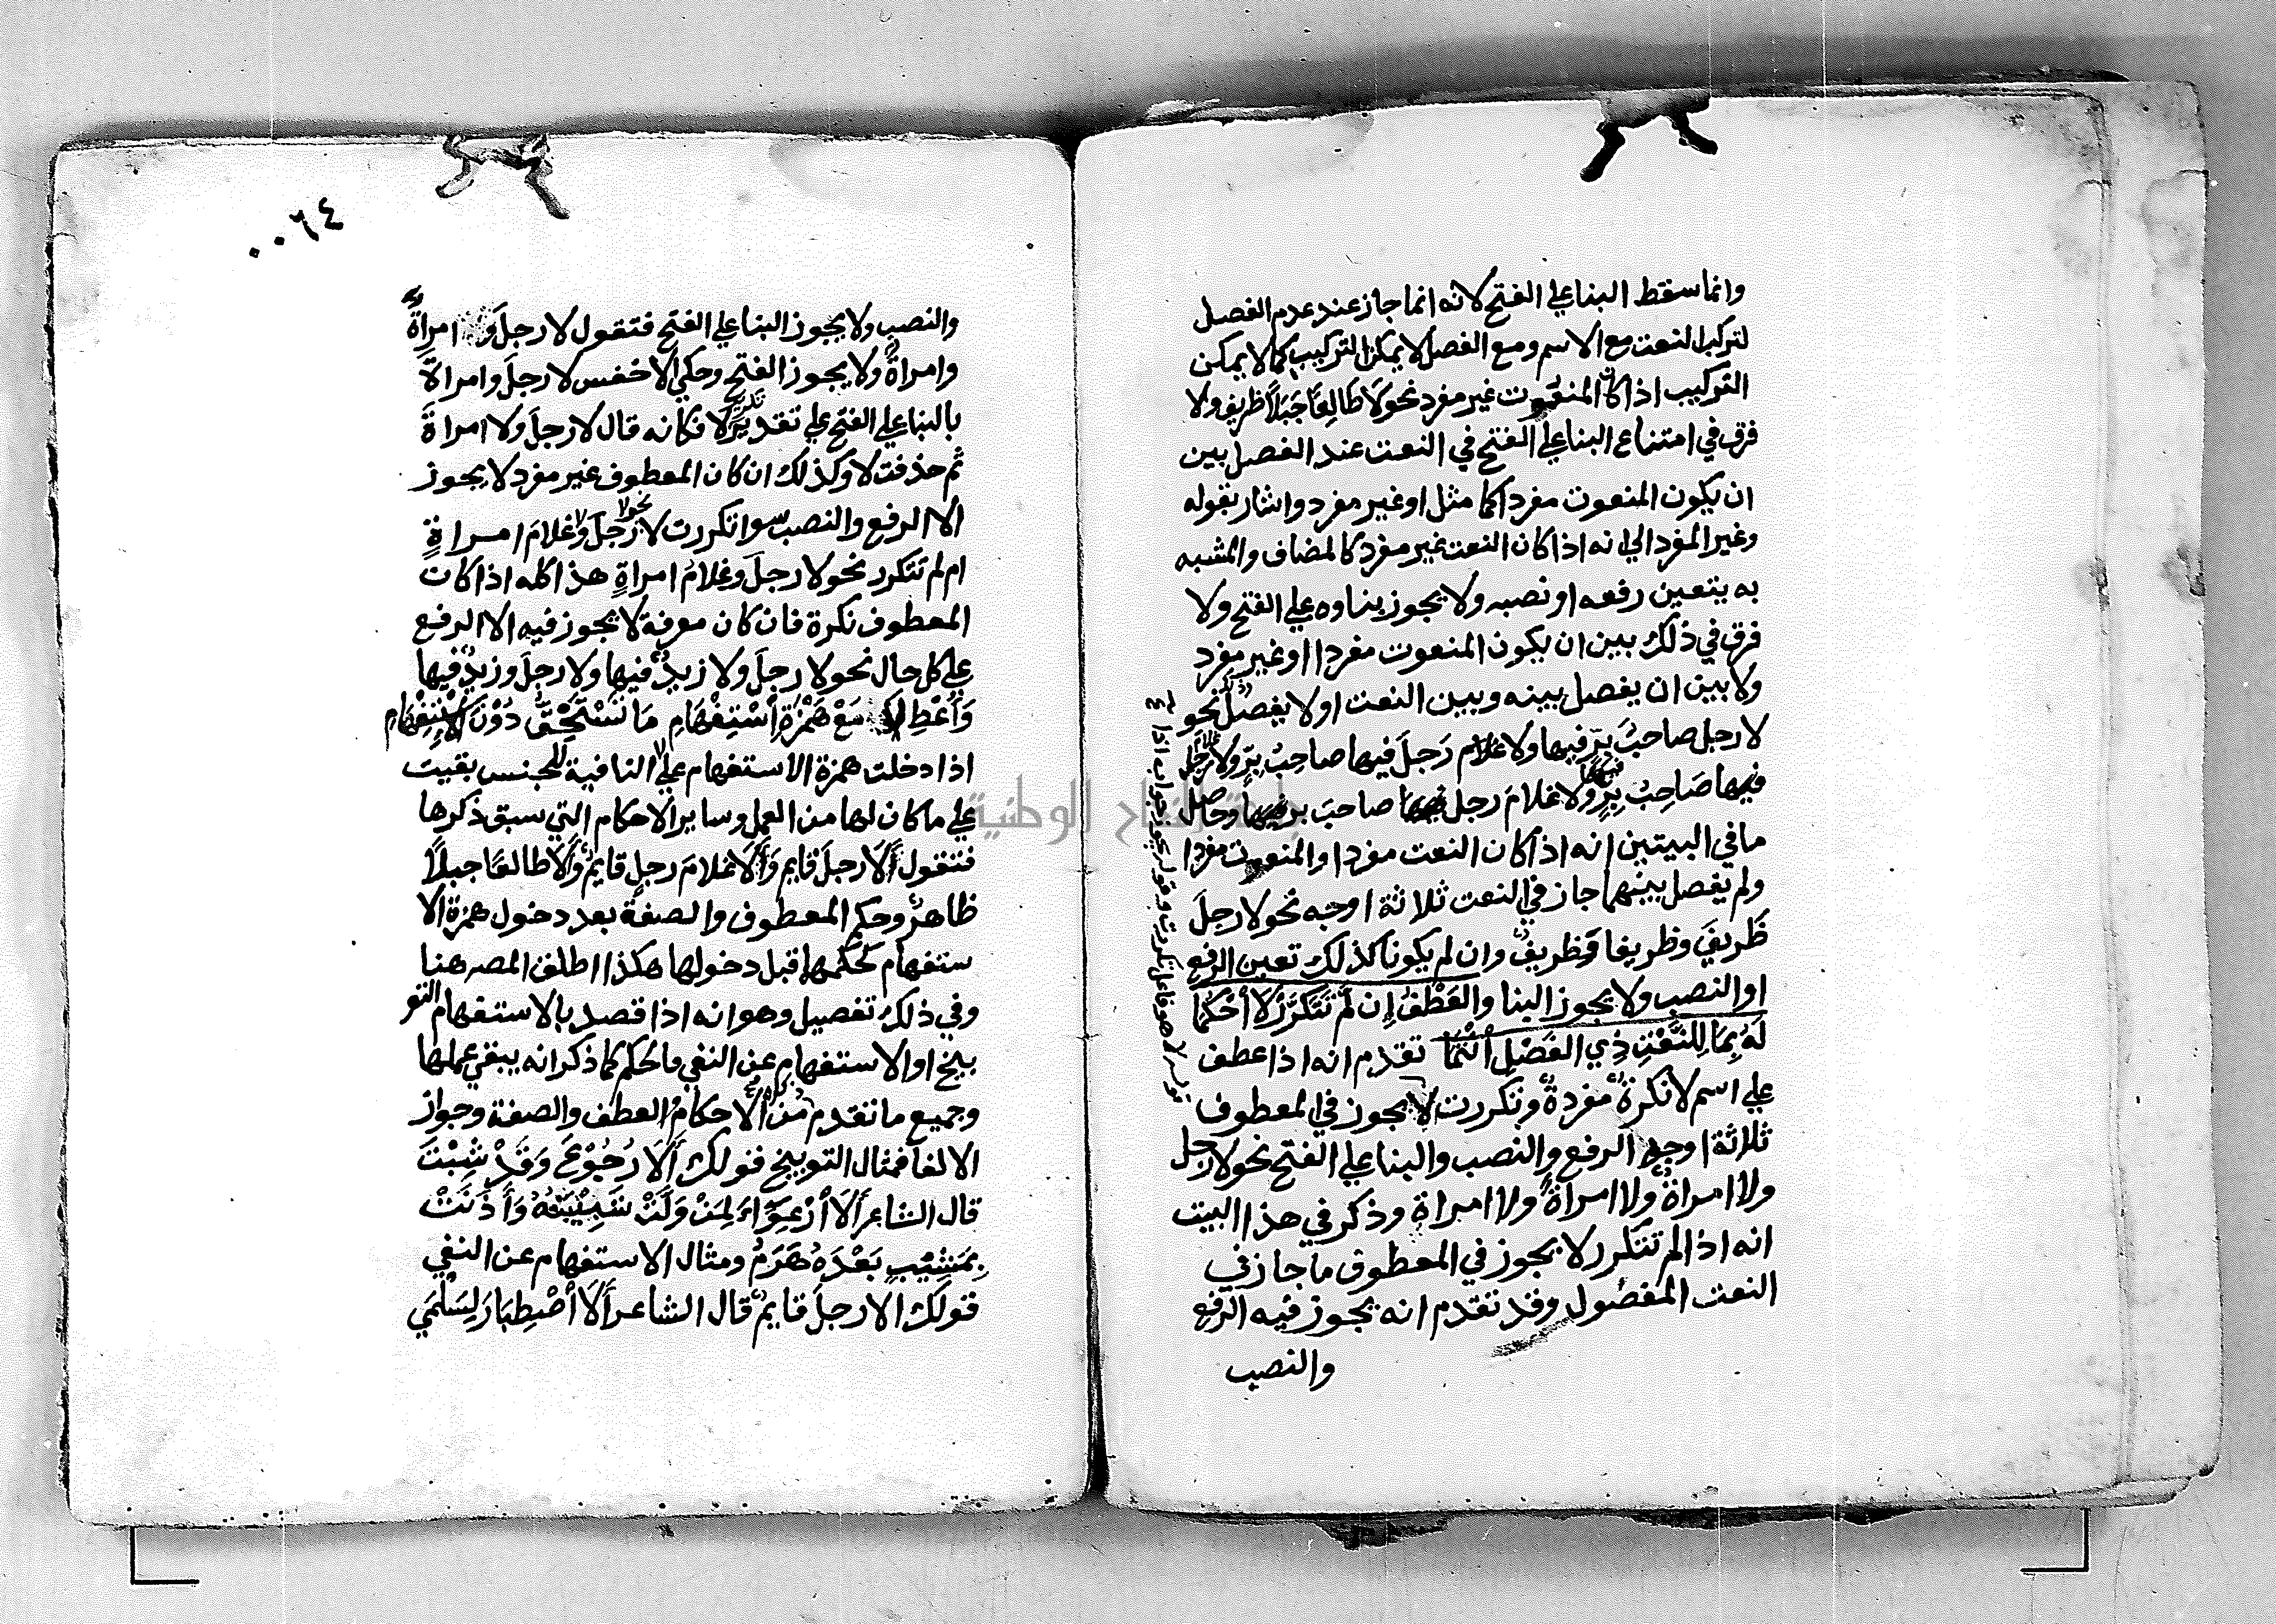 وانما سقط البنا علي الفتح لانه انما جاز عند عدم الفصل
لتركيب النعت مع الاسم ومع الفصل لا يمكن التركيب كما لا يمكن
التركيب اذا كان المنعوت غير مفرد نحو لا طالِعًا جَبَلًا ظريف ولا
فرق في امتناع البنا علي الفتح في النعت عند الفصل بين
ان يكون المنعوت مفردا كما مثل او غير مفرد واشار بقوله
وغير المفرد الي انه اذا كان النعت غير مفرد كالمضاف والمشبه
به يتعين رفعه او نصبه ولا يجوز بناوه علي الفتح ولا
فرق في ذلك بين ان يكون المنعوت مفردا او غير مفرد
ولا بين ان يفصل بينه وبين النعت او لا يفصل نحو
لا رجل صاحبُ برٍّ فيها ولا غلام رَجلَ فيها صاحِبُ برٍّ ولا رجل
فيها صَاحِبُ بِرٍّ ولا غلامَ رجل فيها صاحبَ بر فيها وحاصل
ما في البيتين انه اذا كان النعت مفردا والمنعوت مفردا
ولم يفصل بينهما جاز في النعت ثلاثة اوجه نحو لا رجلَ
ظَريفَ وظريفا وظريفٌ وان لم يكونا كذلك تعين الرفع
او النصب ولا يجوز البنا والعَطْفُ إن لَّم تَتَكَرَّرْ لا أحْكُمَا
لَهُ بِمَا لِلنَّعْتِ ذِي الفَصْلِ انْتَمَا تقدم انه اذا عطف
علي اسم لا نكرةٌ مفردةٌ وتكررت لا يجوز في المعطوف
ثلاثة اوجه الرفع والنصب والبنا علي الفتح نحو لا رجل
ولا امراةٌ ولا امراةً ولا امراة وذكر في هذا البيت
انه اذا لم تتكرر لا يجوز في المعطوف ما جاز في
النعت المفصول وقد تقدم انه يجوز فيه الرفع
والنصب
٠٠٦٤
والنصب ولا يجوز البنا علي الفتح فتقول لا رجلَ و امراةٌ
وامراةً ولا يجوز الفتح وحكي الاخفس لا رجلَ وامراةَ
بالبنا علي الفتح علي تقدير تكرير لا فكانه قال لا رجلَ ولا امراةَ
ثم حذفت لا وكذلك ان كان المعطوف غير مفرد لا يجوز
الا الرفع والنصب سوا تكررت لا نحو لا رجلَ ولا غلامَ امراةٍ
ام لم تتكرر نحو لا رجلَ وغلامُ امراةٍ هذا كله اذا كان
المعطوف نكرة فان كان معرفة لا يجوز فيه الا الرفع
علي كل حال نحو لا رجلَ ولا زيدٌ فيها ولا رجلَ وزيدٌ فيها
وَأَعْطِ لا مَعْ هَمْزَةِ اسْتِفْهَامِ مَا تَسْتَحِقُّ دُوْنَ الاِسْتِفْهَامِ
اذا دخلت همزة الاستفهام علي لا النافية للجنس بقيت
علي ما كان لها من العمل وساير الاحكام التي سبق ذكرها
فتقول أَلَا رجلَ قايم وَأَلَا غلامَ رجل قايمٌ وَأَلَا طالعًا جبلًا
ظاهرٌ وحكم المعطوف والصفة بعد دخول همزة الا
ستفهام كحكمها قبل دخولها هكذا اطلق المصر هنا
وفي ذلك تفصيل وهو انه اذا قصد بالاستفهام التو
بيخ او الاستفهام عن النفي فالحكم كما ذكر انه يبقي عملها
وجميع ما تقدم من الاحكام العطف والصفة وجواز
الالغا فمثال التوبيخ قولك أَلَا رُجُوْعَ وَقَدْ شِبْتَ
قال الشاعر أَلَا ارْعِوَاءَ لِمَنْ وَلَّتْ شَبِيْبَتُهُ وَأَذَنَتْ
بِمَشِيْبٍ بَعْدَهُ هَرَمُ ومثال الاستفهام عن النفي
قولك الا رجلَ قايمٌ قال الشاعر أَلَا اصْطِبَارَ لِسَلْمَي